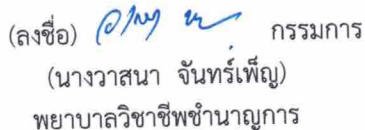 (ลงชื่อ) กรรมการ
(นางวาสนา จันทร์เพ็ญ)
พยาบาลวิชาชีพชำนาญการ